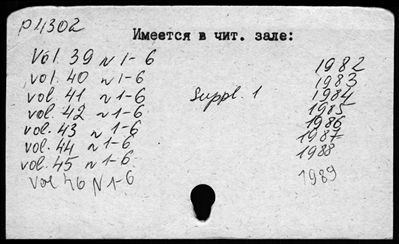 P4302
Имеется в чит. зале:
Vol. 39 N 1-6 1982
vol. 40 N 1-6 1983
vol. 41 N 1-6 Suppl. 1 1984
vol. 42 N 1-6 1985
vol. 43 N 1-6 1986
vol. 44 N 1-6 1987
vol. 45 N 1-6 1988
vol 46 N 1-6 1989